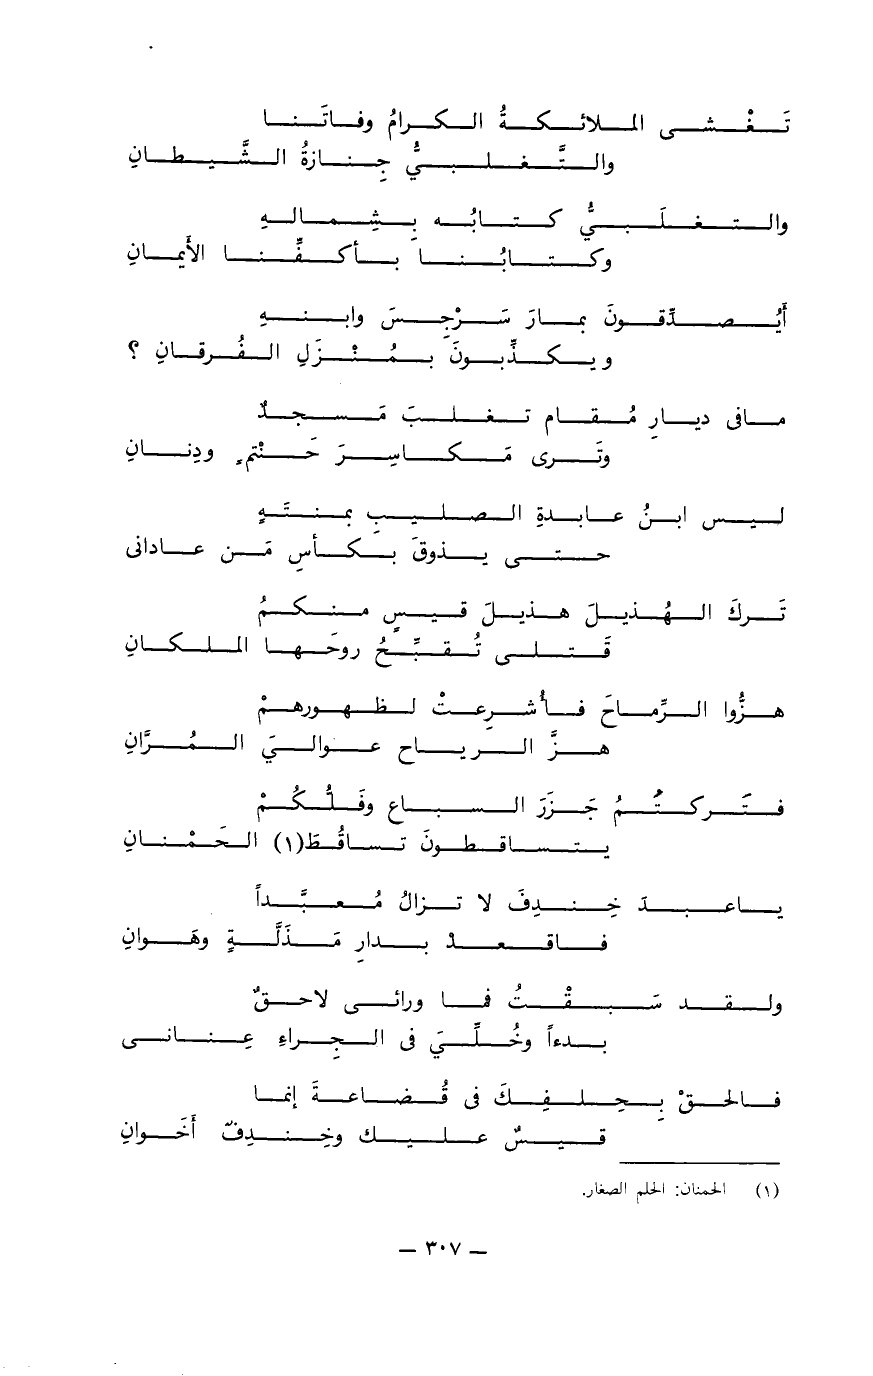 تَغْشى الملائكةُ الكرامُ وفاتَنا
والتَّغلبيُّ جِنازةُ الشَّيطانِ
والتغلَبيُّ كتابُه بِشِمالهِ
وكتابُنا بأكفِّنا الأَيمانِ
أَيُصدِّقونَ بمارَ سَرْجِسَ وابنهِ
ويكذِّبونَ بمُنْزَلِ الفُرقانِ ؟
مافى ديارِ مُقام تغلبَ مَسجدٌ
وتَرى مَكاسِرَ حَنْتمٍ ودِنانِ
ليس ابنُ عابدةِ الصليبِ بمنتَهٍ
حتى يذوقَ بكأسِ مَن عادانى
تَركَ الهُذيلَ هذيلَ قيسٍ منكمُ
قَتلى تُقبِّحُ روحَها الملكانِ
هزُّوا الرِّماحَ فأُشرِعتْ لظهورهمْ
هزَّ الرياح عواليَ المُرَّانِ
فتَركتُمُ جَزَرَ السباع وفَلُّكُمْ
يتساقطونَ تساقُطَ(١) الحَمْنانِ
ياعبدَ خِندِفَ لا تزالُ مُعبَّداً
فاقعدْ بدارِ مَذَلَّةٍ وهَوانِ
ولقد سَبقْتُ فما ورائى لاحقٌ
بدءاً وخُلِّيَ فى الجِراءِ عِنانى
فالحقْ بِحِلفِكَ فى قُضاعةَ إنما
قيسٌ عليك وخِندِفٌ أخَوانِ
(١) الحمنان: الحلم الصغار.
— ٣٠٧ —